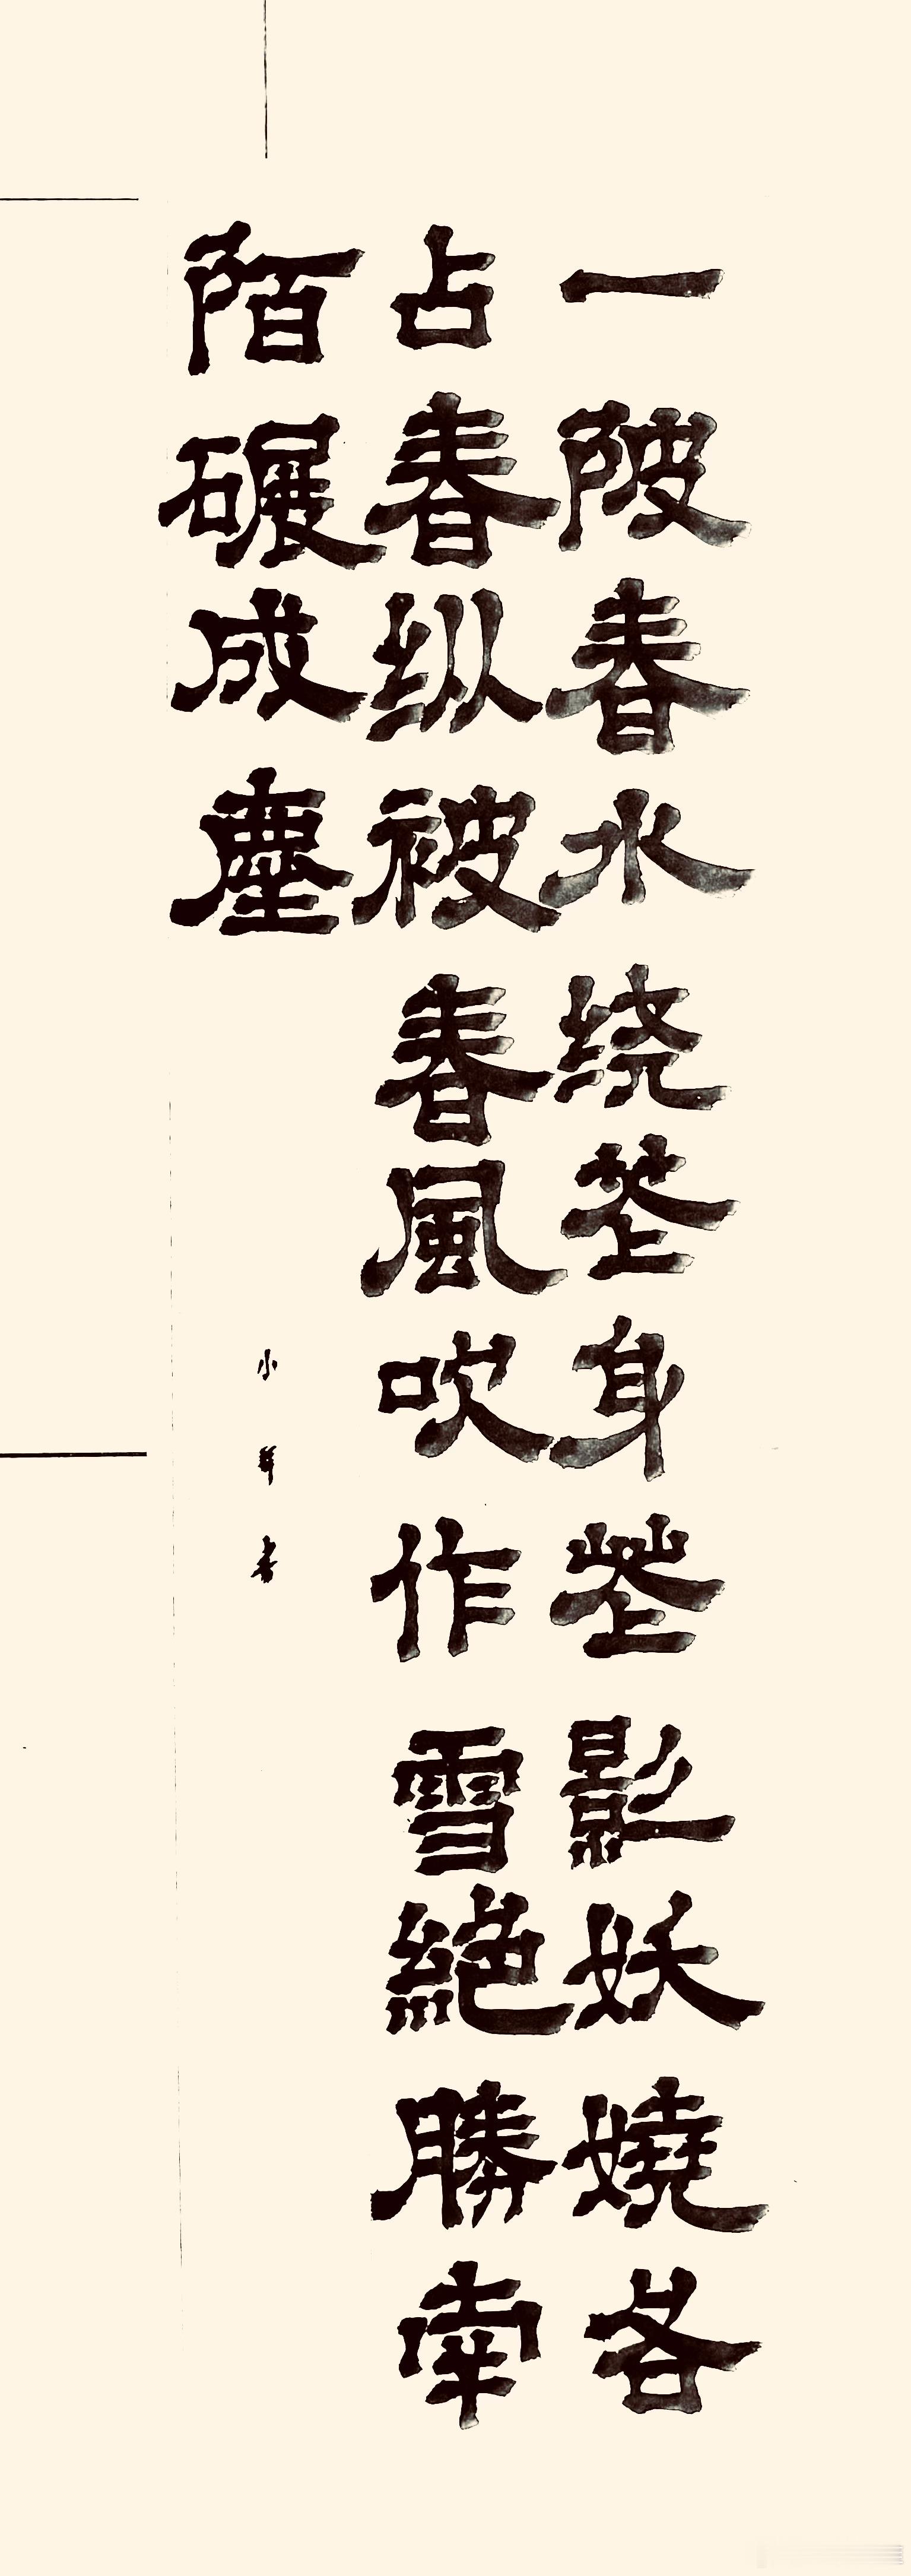 一陂春水绕花身花影妖娆各
占春纵被春風吹作雪絶勝南
陌碾成塵
小輝書